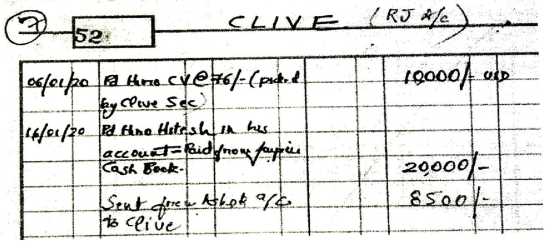 7 52 CLIVE (RJ A/c)
06/01/20 Pd thro CV @ 76/- (pickd 10,000/- USD
by Clive Sec)
16/01/20 Pd thro Hitesh in his
account - Paid from
Cash Book. 20,000/-
Sent from Ashok a/c 8500/-
to Clive